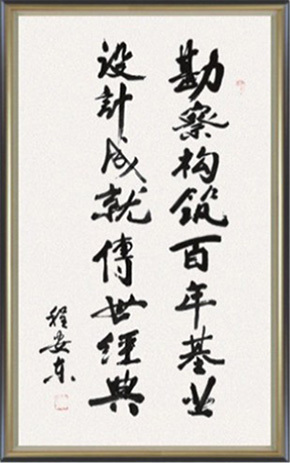 勘察构筑百年基业
设计成就傳世經典
程安东